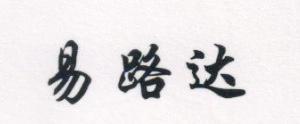 易路达